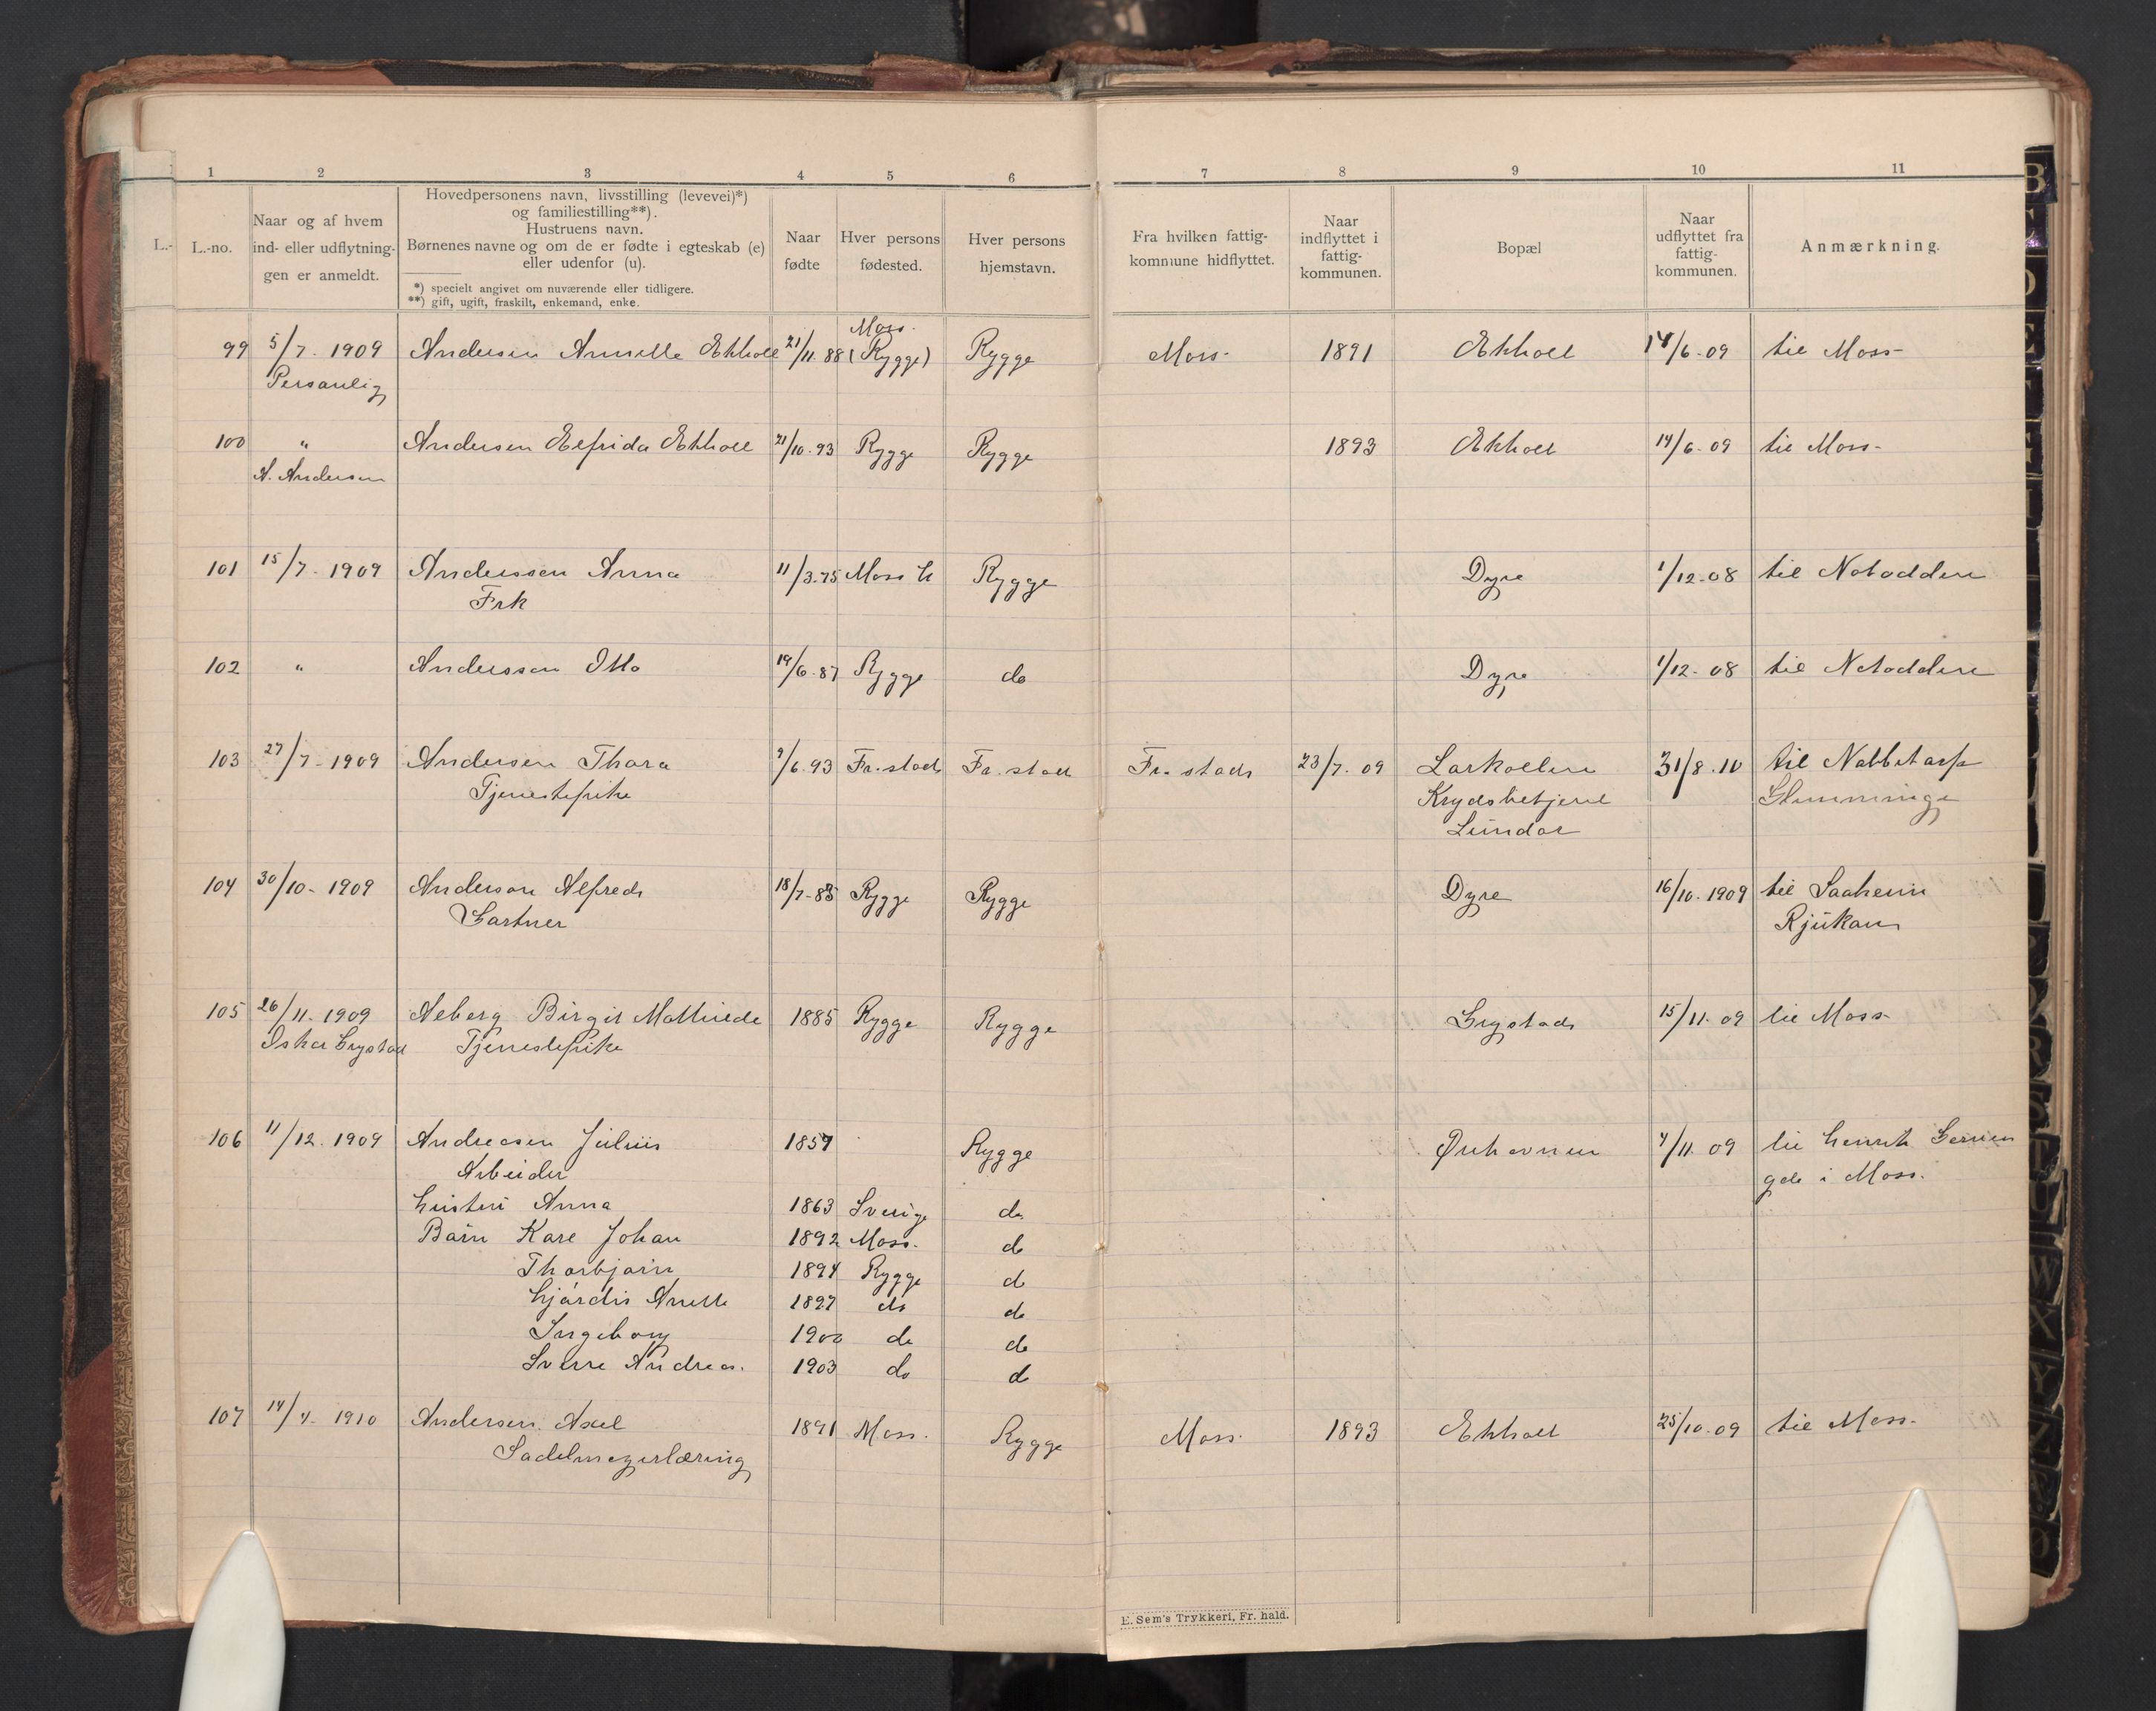 1 2 3 4 5 6 7 8 9 10 11
L.- L.-no.
Naar og af hvem
ind- eller udflytnin-
gen er anmeldt.
Hovedpersonens navn, livsstilling (levevei)*)
og familiestilling**).
Hustruens navn.
Børnenes navne og om de er fødte i egteskab (e)
eller udenfor (u).
*) specielt angivet om nuværende eller tidligere.
**) gift, ugift, fraskilt, enkemand, enke.
Naar
fødte
Hver persons
fødested.
Hver persons
hjemstavn.
Fra hvilken fattig-
kommune hidflyttet.
Naar
indflyttet i
fattig-
kommunen.
Bopæl
Naar
udflyttet fra
fattig-
kommunen.
Anmærkning.
Moss.
99 5/7. 1909 Andersen Ekholt 21/11. 88 (Rygge) Rygge Moss 1891 Ekholt 14/6-09 til Moss
Personlig
100 " Andersen Elfrida Ekholt 21/10.93 Rygge Rygge 1893 Ekholt 14/6-09 til Moss
A. Andersen
101 15/7-1909 Anderssen Anna 11/3.75 Moss Rygge Dyre 1/12-08 til Notodden
Frk
102 " Anderssen Otto 19/6.87 Rygge do Dyre 1/12-08 til Notodden
103 27/7-1909 Andersen Thora 9/6.93 Fr.stad Fr.stad Fr.stad 23/7.09 Larkollen 31/8.10 til Nabbetorp
Tjenestepike Krydsbetjent Glemminge
Lundar
104 30/10-1909 Anderson Alfred 18/7-85 Rygge Rygge Dyre 16/10.1909 til Saaheim
Gartner Rjukan
105 26/11-1909 Aeberg Birgit Mathilde 1885 Rygge Rygge Grystad 15/11.09 til Moss
Grystad Tjenestepike
106 11/12.1909 Andreasen Julius 1857 Rygge 4/11.09 til Henrik Gerners
Arbeider gde i Moss.
Hustru Anna 1863 Sverige do
Barn Karl Johan 1892 Moss. do
Thorbjørn 1894 Rygge do
Hjørdis Anette 1897 do do
Ingeborg 1900 do do
Sverre Andreas. 1903 do do
107 14/4-1910 Andersen. Axel 1891 Moss. Rygge Moss. 1893 Ekholt 25/10-09 til Moss.
Sadelmagerlæring
E. Sem's Trykkeri, Fr. hald.